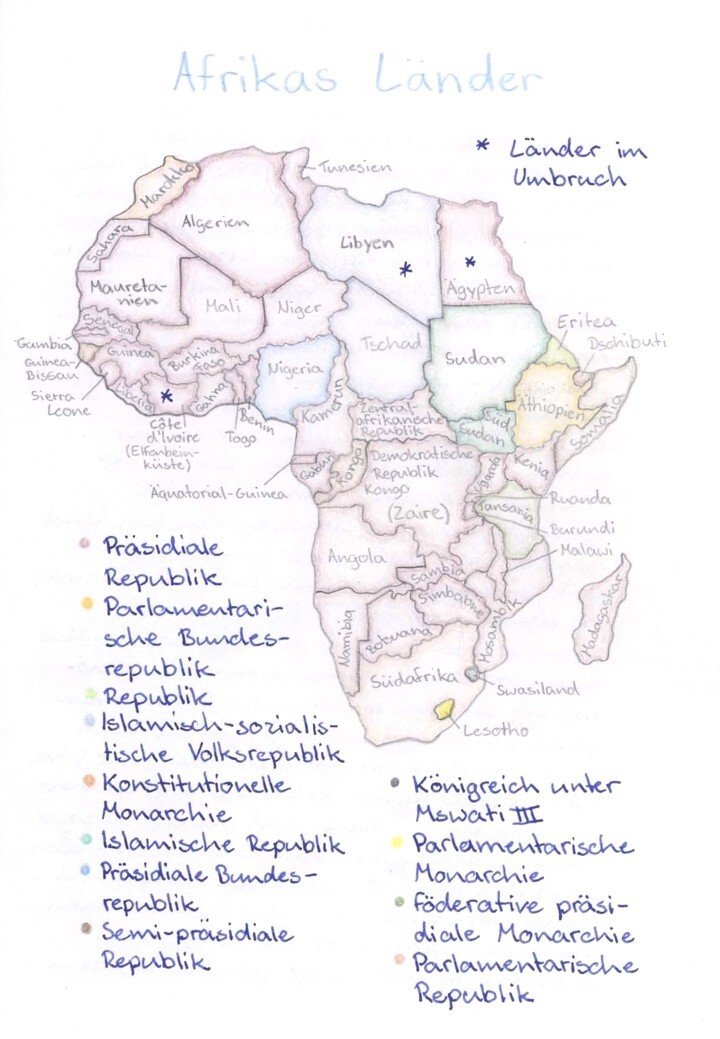 Afrikas Länder
* Länder im
Umbruch
Tunesien
Marokko
Algerien
Sahara
Libyen
*
Ägypten
*
Maureta-
nien
Mali
Niger
Tschad
Sudan
Eritea
Dschibuti
Senegal
Gambia
Guinea-
Bissau
Guinea
Burkina
Faso
Nigeria
Äthiopien
Somalia
Sierra
Leone
Liberia
*
Ghana
Benin
Togo
Côtel
d'Ivoire
(Elfenbein-
küste)
Kamerun
Zentral-
afrikanische
Republik
Süd
Sudan
Äquatorial-Guinea
Gabun
Kongo
Demokratische
Republik
Kongo
(Zaire)
Uganda
Kenia
Ruanda
Tansania
Burundi
Malawi
Angola
Sambia
Simbabwe
Mosambik
Madagaskar
Namibia
Botswana
Südafrika
Swasiland
Lesotho
Präsidiale
Republik
Parlamentari-
sche Bundes-
republik
Republik
Islamisch-sozialis-
tische Volksrepublik
Konstitutionelle
Monarchie
Islamische Republik
Präsidiale Bundes-
republik
Semi-präsidiale
Republik
Königreich unter
Mswati III
Parlamentarische
Monarchie
föderative präsi-
diale Monarchie
Parlamentarische
Republik